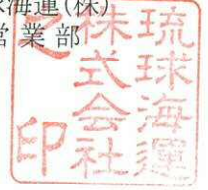 海運(株)
営業部
琉球海運
株式会社
之印